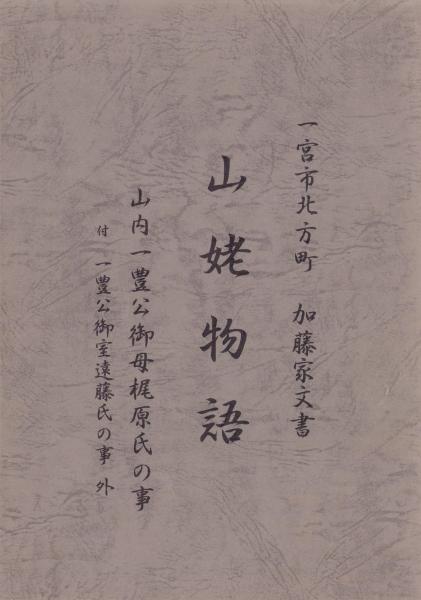 一宮市北方町　加藤家文書
山姥物語
山内一豊公御母梶原氏の事
付　一豊公御室遠藤氏の事　外